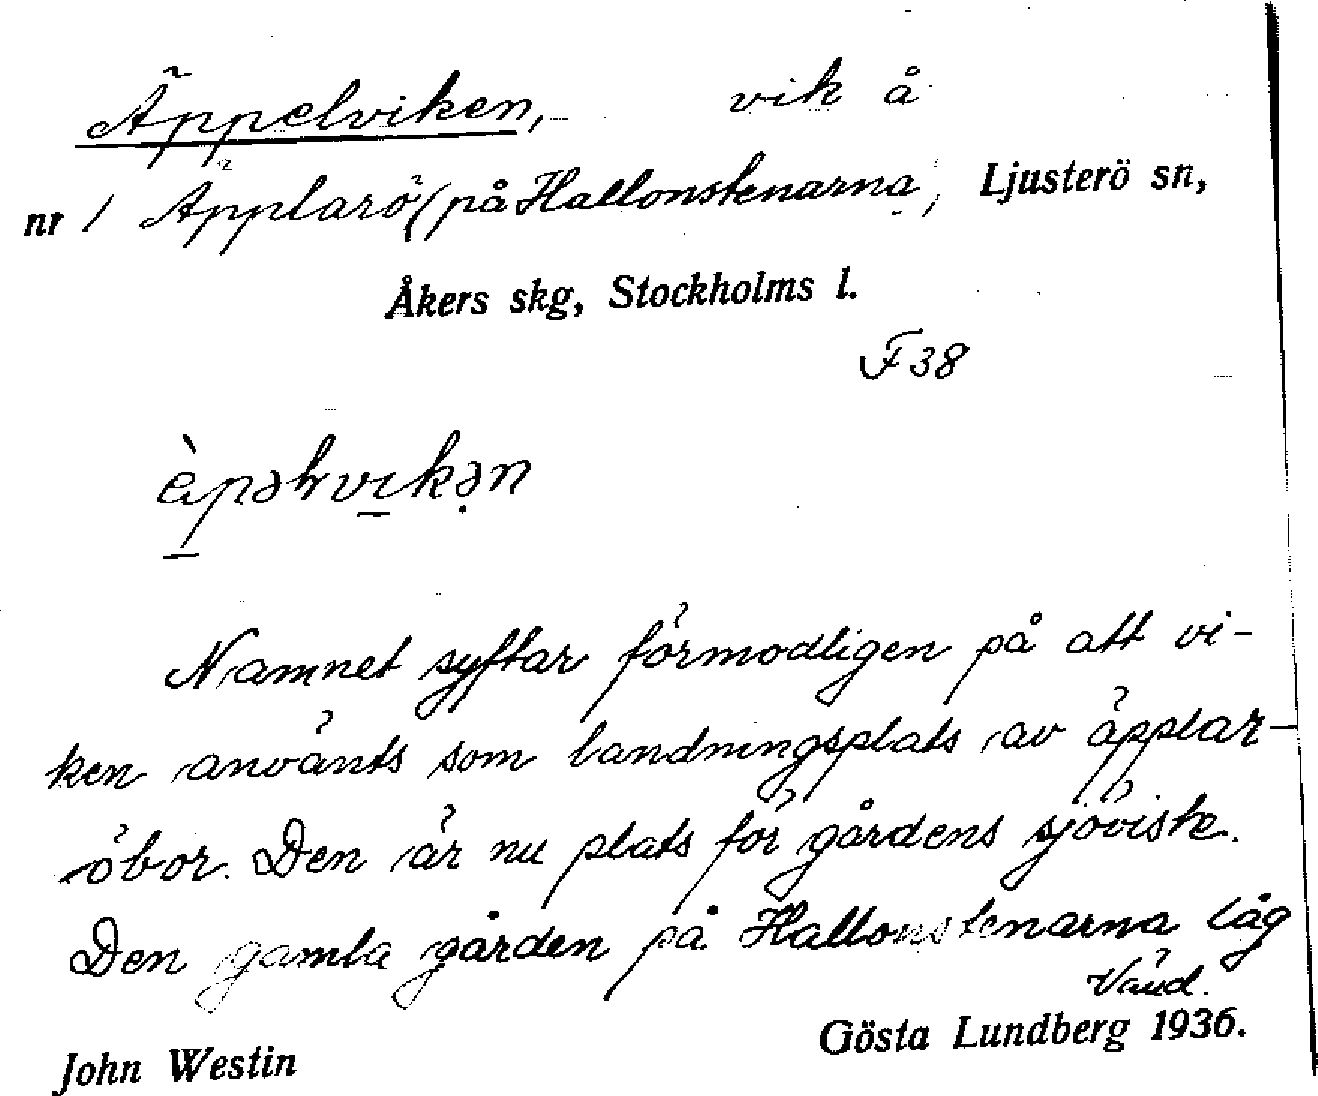 Äppelviken, vik å
nr 1 Äpplarö (på Hallonstenarna; Ljusterö sn,
Åkers skg, Stockholms l.
F 38
Namnet syftar förmodligen på att vi-
ken använts som landningsplats av äpplar-
öbor. Den är nu plats för gårdens sjöviste.
Den gamla gården på Hallonstenarna låg
Vänd.
John Westin Gösta Lundberg 1936.